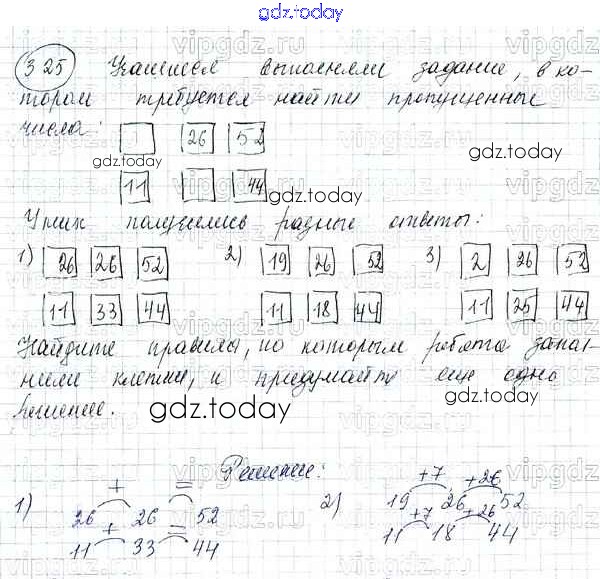 gdz.today
325 Учащиеся выполняли задание, в ко-
тором требуется найти пропущенные
числа:
26 52
gdz.today
gdz.today
11 44
У них получились разные ответы:
1) 26 26 52 2) 19 26 52 3) 2 26 52
11 33 44 11 18 44 11 25 44
Найдите правила, по которым ребята запол-
нили клетки, и придумайте еще одно
решение.
gdz.today
gdz.today
Решение:
+ = +7 +26
1) 26 26 52 2) 19 26 52
+ = +7 +26
11 33 44 11 18 44
vipgdz.ru